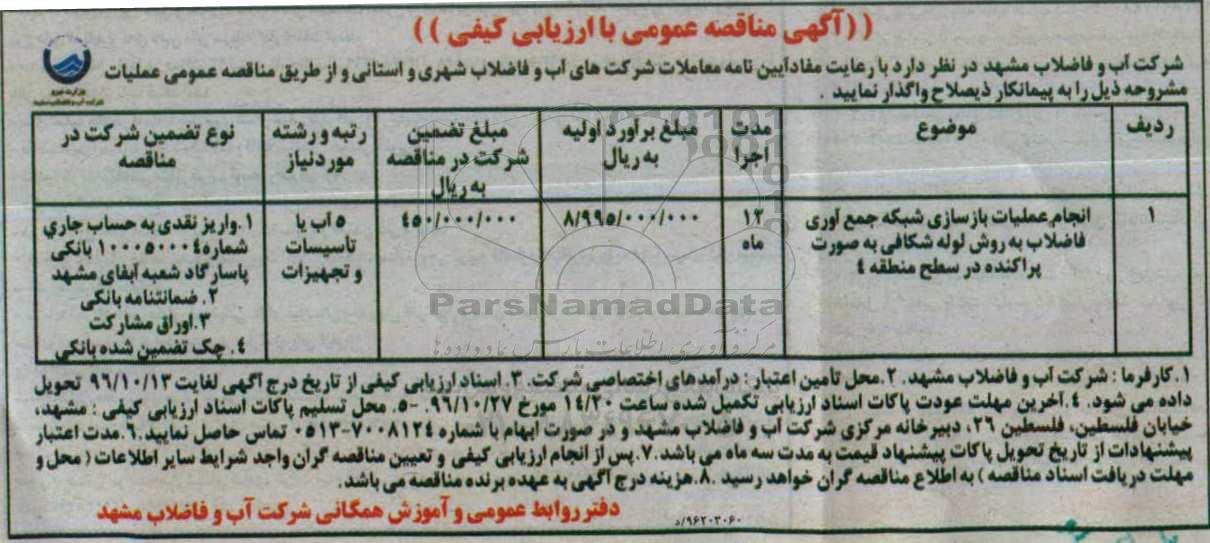 ((آگهی مناقصه عمومی با ارزیابی کیفی))
وزارت نیرو
شرکت آب و فاضلاب مشهد
شرکت آب و فاضلاب مشهد در نظر دارد با رعایت مفادآیین نامه معاملات شرکت های آب و فاضلاب شهری و استانی و از طریق مناقصه عمومی عملیات
مشروحه ذیل را به پیمانکار ذیصلاح واگذار نمایید .
ردیف
موضوع
مدت
اجرا
مبلغ برآورد اولیه
به ریال
مبلغ تضمین
شرکت در مناقصه
به ریال
رتبه و رشته
موردنیاز
نوع تضمین شرکت در
مناقصه
۱
انجام عملیات بازسازی شبکه جمع آوری
فاضلاب به روش لوله شکافی به صورت
پراکنده در سطح منطقه ٤
۱۲
ماه
۸/۹۹۵/۰۰۰/۰۰۰
٤۵۰/۰۰۰/۰۰۰
۵ آب یا
تاسیسات
و تجهیزات
۱.واریز نقدی به حساب جاری
شماره۱۰۰۰۵۰۰۰٤ بانکی
پاسارگاد شعبه آبفای مشهد
۲. ضمانتنامه بانکی
۳.اوراق مشارکت
٤. چک تضمین شده بانکی
ParsNamadData
مرکز فرآوری اطلاعات پارس نماد داده ها
۱.کارفرما : شرکت آب و فاضلاب مشهد. ۲.محل تأمین اعتبار : درآمدهای اختصاصی شرکت. ۳. اسناد ارزیابی کیفی از تاریخ درج آگهی لغایت ۹۶/۱۰/۱۳ تحویل
داده می شود. ٤.آخرین مهلت عودت پاکات اسناد ارزیابی تکمیل شده ساعت ۱٤/۳۰ مورخ ۹۶/۱۰/۲۷. -۵. محل تسلیم پاکات اسناد ارزیابی کیفی : مشهد،
خیابان فلسطین، فلسطین ۲۶، دبیرخانه مرکزی شرکت آب و فاضلاب مشهد و در صورت ابهام با شماره ۷۰۰۸۱۲٤-۰۵۱۳ تماس حاصل نمایید.۶.مدت اعتبار
پیشنهادات از تاریخ تحویل پاکات پیشنهاد قیمت به مدت سه ماه می باشد.۷.پس از انجام ارزیابی کیفی و تعیین مناقصه گران واجد شرایط سایر اطلاعات ( محل و
مهلت دریافت اسناد مناقصه ) به اطلاع مناقصه گران خواهد رسید .۸.هزینه درج آگهی به عهده برنده مناقصه می باشد.
دفتر روابط عمومی و آموزش همگانی شرکت آب و فاضلاب مشهد
۹۶۲۰۳۰۶۰/د